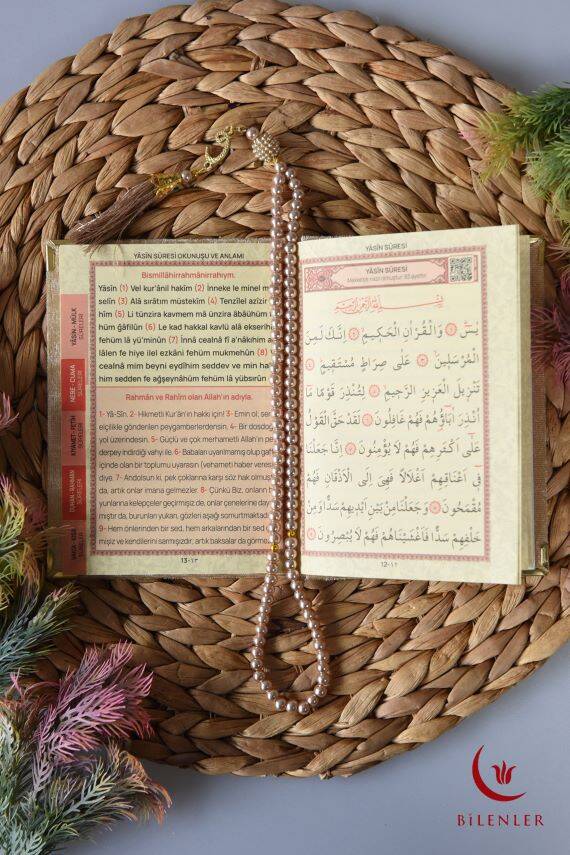 YÂSÎN SÛRESİ OKUNUŞU VE ANLAMI
Bismillâhirrahmânirrahıym.
Yâsîn (1) Vel kur'ânil hakîm (2) İnneke le minel m
selîn (3) Alâ sırâtım müstekîm (4) Tenzîlel azîzir
hîm (5) Li tünzira kavmem mâ ünzira âbâühüm
hüm ğâfilûn (6) Le kad hakkal kavlü alâ ekserihi
fehüm lâ yü'minûn (7) İnnâ cealnâ fî a'nâkihim a
lâlen fe hiye ilel ezkâni fehüm mukmehûn (8)
cealnâ mim beyni eydîhim seddev ve min ha
him sedden fe ağşeynâhüm fehüm lâ yübsırûn
Rahmân ve Rahîm olan Allah'ın adıyla.
1- Yâ-Sîn. 2- Hikmetli Kur'ân'ın hakkı için! 3- Emin ol, sen
elçilikle gönderilen peygamberlerdensin. 4- Bir dosdoğ
yol üzerindesin. 5- Güçlü ve çok merhametli Allah'ın pe
derpey indirdiği vahy ile. 6- Babaları uyarılmamış olup gafl
içinde olan bir toplumu uyarasın (vehameti haber veres
diye. 7- Andolsun ki, pek çoklarına karşı söz hak olmuştu
da, artık onlar imana gelmezler. 8- Çünkü Biz, onların b
yunlarına kelepçeler geçirmişiz de, onlar çenelerine daya
mıştır da, burunları yukarı, gözleri aşağı somurtmaktad
9- Hem önlerinden bir sed, hem arkalarından bir sed
mişiz ve kendilerini sarmışızdır; artık baksalar da görme
YÂSÎN - MÜLK
SÛRELERİ
NEBE - CUMA
SÛRELERİ
KIYAMET - FETİH
SÛRELERİ
DUHAN - RAHMAN
SÛRELERİ
VAKIA - KISA
SÛRELER
13-١٣
YÂSÎN SÛRESİ
YÂSÎN SÛRESİ
Mekke'de nazil olmuştur. 83 ayettir.
بِسْمِ اللّٰهِ الرَّحْمٰنِ الرَّحِيمِ
يٰسٓ ۝ وَالْقُرْاٰنِ الْحَكِيمِ ۝ اِنَّكَ لَمِنَ
الْمُرْسَلِينَ ۝ عَلٰى صِرَاطٍ مُسْتَقِيمٍ ۝
تَنْزِيلَ الْعَزِيزِ الرَّحِيمِ ۝ لِتُنْذِرَ قَوْمًا مَا
اُنْذِرَ اٰبَاؤُهُمْ فَهُمْ غَافِلُونَ ۝ لَقَدْ حَقَّ الْقَوْلُ
عَلٰى اَكْثَرِهِمْ فَهُمْ لَا يُؤْمِنُونَ ۝ اِنَّا جَعَلْنَا
فِى اَعْنَاقِهِمْ اَغْلَالًا فَهِىَ اِلَى الْاَذْقَانِ فَهُمْ
مُقْمَحُونَ ۝ وَجَعَلْنَا مِنْ بَيْنِ اَيْدِيهِمْ سَدًّا وَمِنْ
خَلْفِهِمْ سَدًّا فَاَغْشَيْنَاهُمْ فَهُمْ لَا يُبْصِرُونَ ۝
12-١٢
BİLENLER